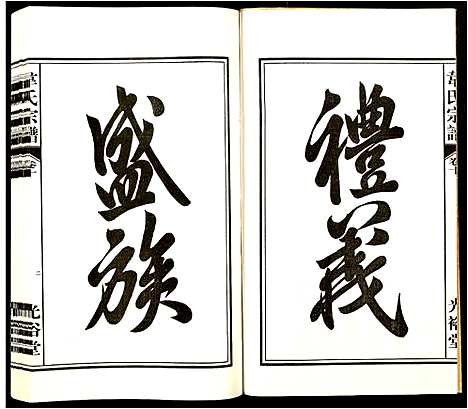 禮義
盛族
韋氏宗譜
卷十
光裕堂
韋氏宗譜
卷十
二
光裕堂